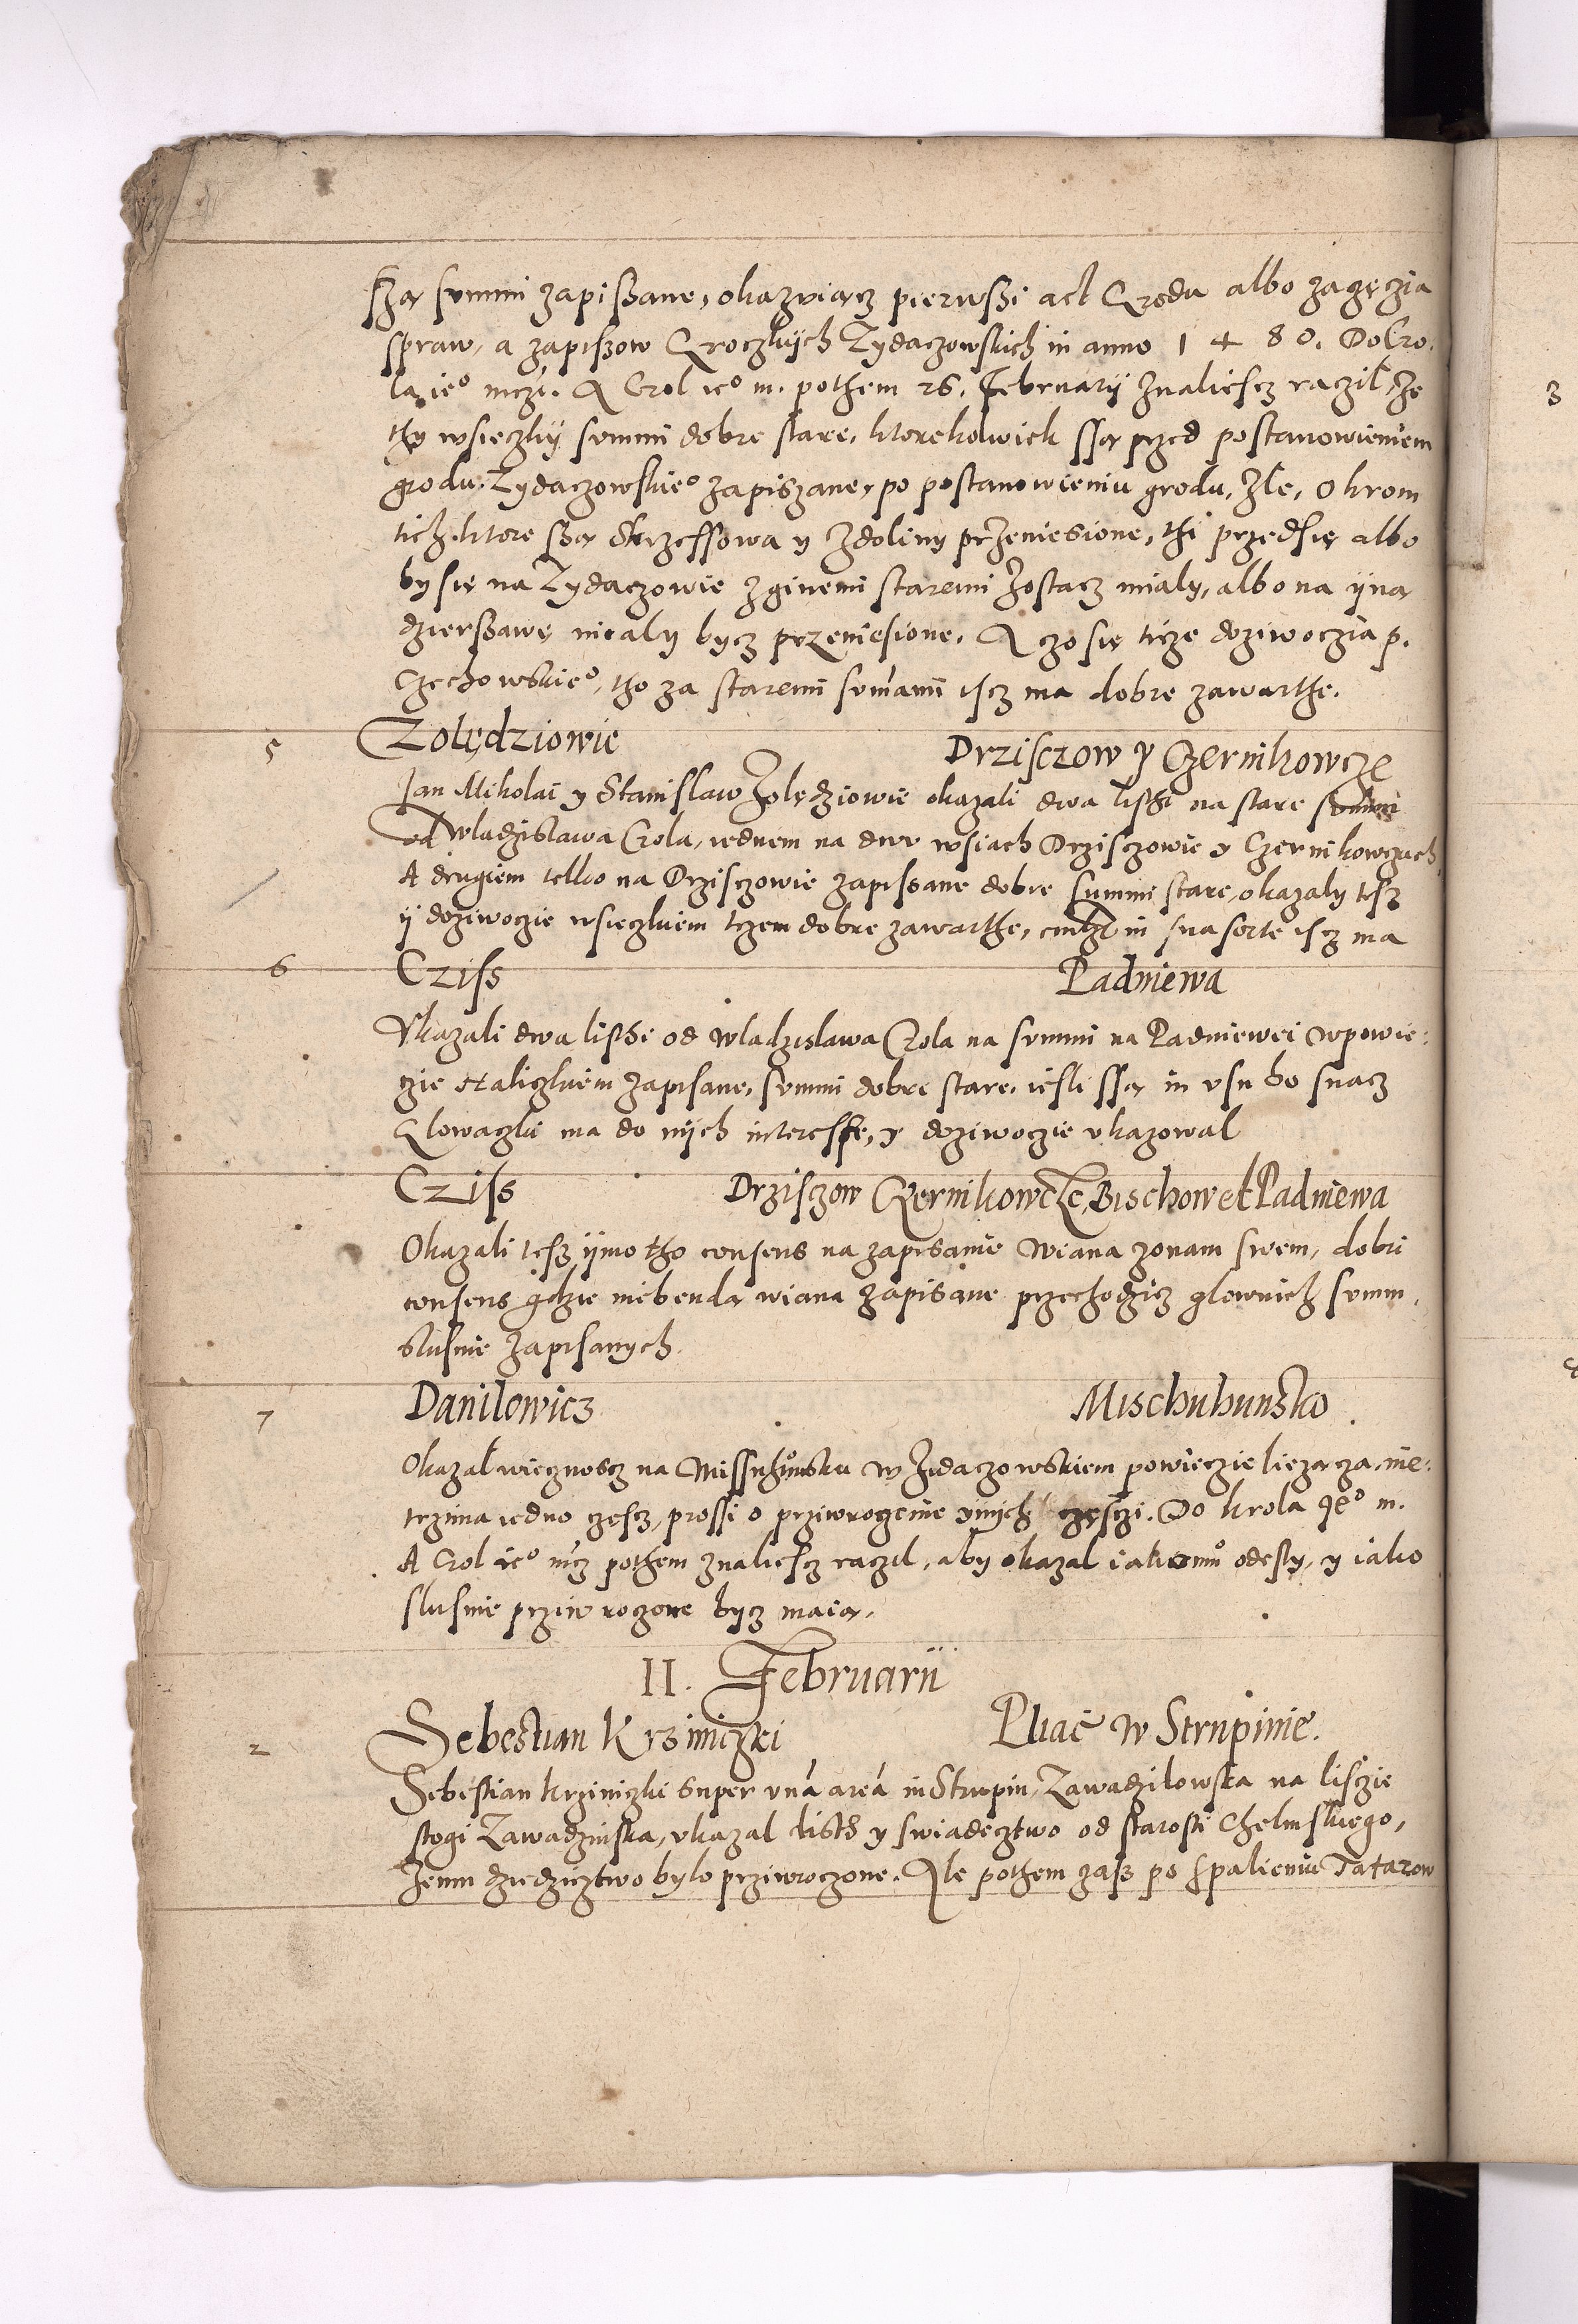 szą summi zapißane, okazviącz pierwßi act Grodu albo zagęzia
spraw, a zapißow Groczkÿch Zydaczowskich in anno 1480. Do Cro-
la ie° mczi. A Crol ie° m. pothem 26. Februarÿ znaliescz raczil, ze
thy wsieczkÿ summi dobre stare, ktorekolwiek ssą przed postanowieniem
grodu Zydaczowskie° zapiszane, po postanowieniu grodu, zle, okrom
tich ktore ssą Strzessowa y zdoliny przeniesione, thi przedsię albo
by się na Zydaczowie zginemi staremi zostacz mialy, albo na ÿną
dzierßawę mialy bycz przeniesione. A czo się ticze doziwoczia p.
Czechowskie°, tho za staremi summami iscz ma dobre zawarthe.
5 Zolędziowie Drzisczow y Czernikowcze
Jan Mikolai y Stanislaw Zolędziowie okazali dwa listhi na stare summi
od Wladzislawa Crola, iednem na dwv wsiach Drzisczowie y Czernikowczach
A drugiem telko na Drzisczowie zapissane dobre summi stare, okazaly tesz
ÿ doziwoczie wsieczkiem trzem dobre zawarthe, in sua sorte iscz ma
6 Cziss Padniewa
Vkazali dwa listhi od Wladzislawa Crola na summi na Padniewei w powie-
czie Haliczkiem zapisane, summi dobre stare, iesli ssą in vsu bo snacz
Glowaczki ma do nÿch interesse, y doziwoczie vkazowal
Cziss Drzisczow Czernikowcze, Bischow et Padniewa
Okazali tesz ÿmo tho consens na zapisanie wiana zonam swem, dobri
consens gdzie niebendą wiana zapisane przechodzicz glownich summ
slusnie zapisanych.
7 Danilowicz Mischuhunsko.
Okazal wiecznoscz na Missuhunsku w Zidaczowskiem powieczie liezącza, nie-
trzima iedno czescz, prossi o przirwoczenie ynnych częsczi. Do krola Je° m.
A Crol ie° mcz pothem znaliescz raczil, aby okazal iako mu odesly, y iako
slusnie przirwoczone bycz maią.
II. Februarii
2 Sebestian Krziniczki Plac w Strupinie.
Sebestian krziniczki super vna area in Strupin, Zawadzilowska na lisczie
stogi Zawadzinska, vkazal listh y swiadecztwo od starosti Chelmskiego,
Zemu dziedzicztwo bylo przirwoczone. Ale pothem zasz po spalieniu Tatarow